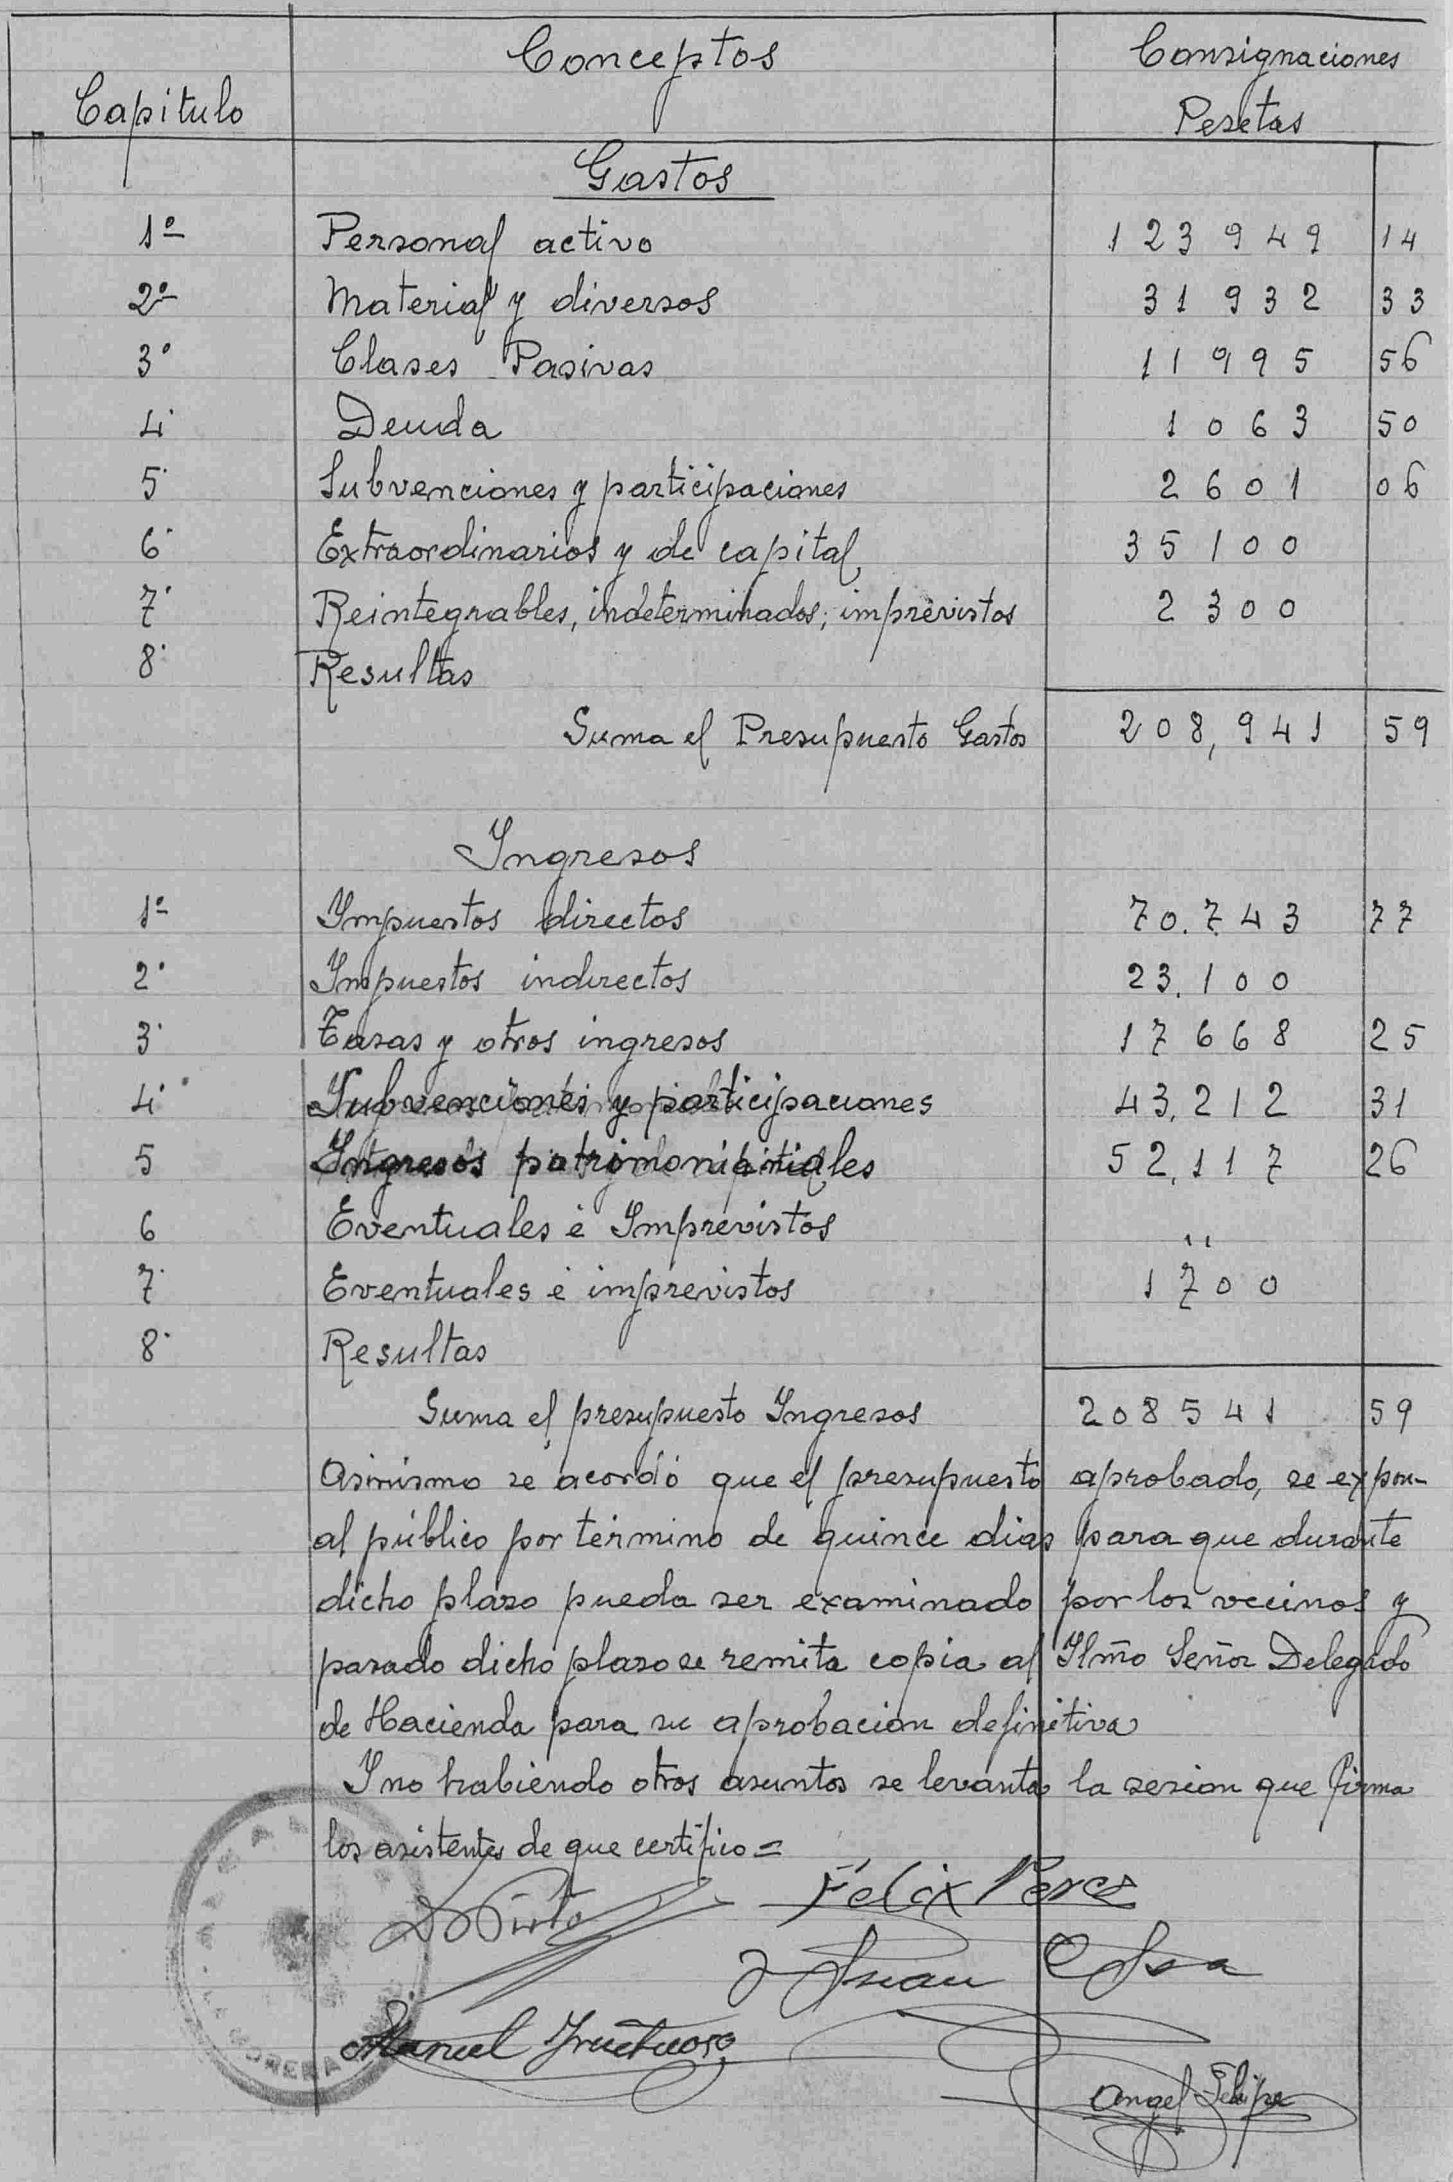 Capitulo Conceptos Consignaciones
Pesetas
Gastos
1º Personal activo 123949 14
2º Material y diversos 31932 33
3º Clases Pasivas 11995 56
4· Deuda 1063 50
5· Subvenciones y participaciones 2601 06
6· Extraordinarios y de capital 35100
7· Reintegrables, indeterminados, imprevistos 2300
8· Resultas
Suma el Presupuesto Gastos 208,941 59
Ingresos
1º Impuestos directos 70.743 77
2· Impuestos indirectos 23.100
3· Tasas y otros ingresos 17668 25
4· Subvenciones y participaciones 43,212 31
5 Ingresos patrimoniales 52,117 26
6 Eventuales é Imprevistos "
7· Eventuales é imprevistos 1700
8· Resultas
Suma el presupuesto Ingresos 208541 59
Asimismo se acordó que el presupuesto aprobado, se expon-
al público por término de quince dias para que durante
dicho plazo pueda ser examinado por los vecinos y
pasado dicho plazo se remita copia al Ilmo Señor Delegado
de Hacienda para su aprobacion definitiva
Y no habiendo otros asuntos se levanta la sesion que firma
los asistentes de que certifico =
Felix Perez
Juan
Manuel Fructuoso
Angel Felipe